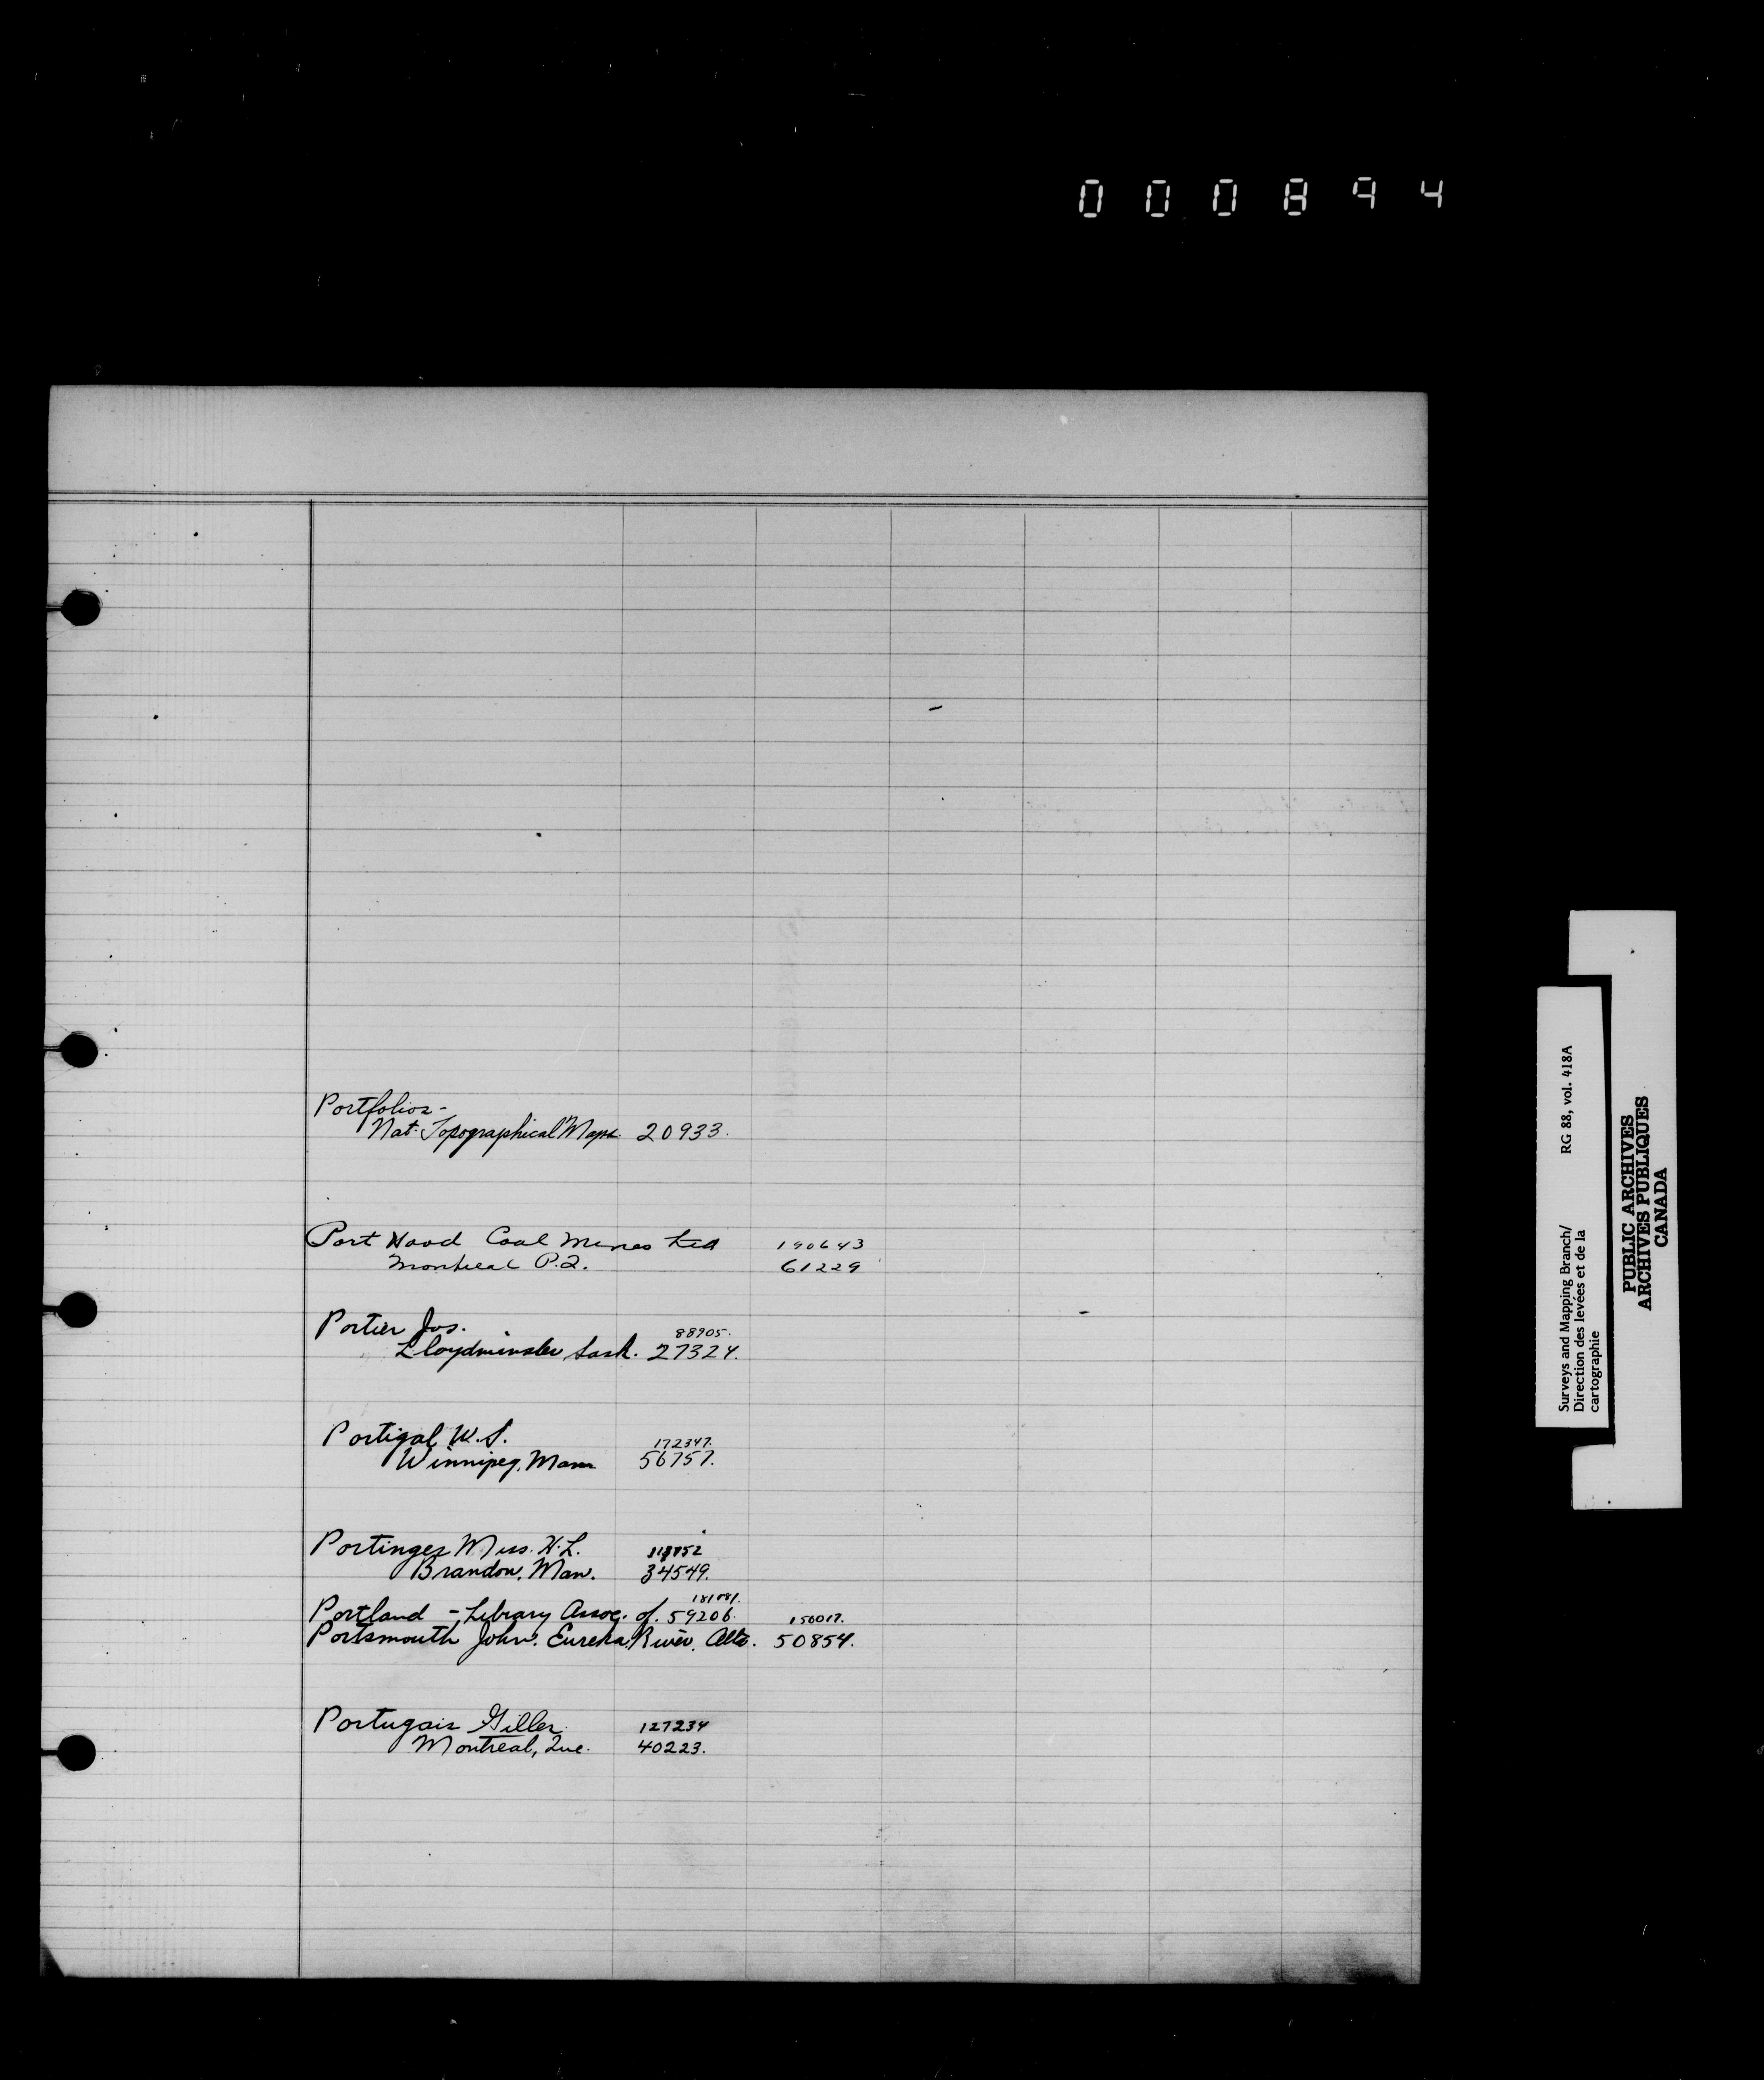 000894
Portfolios-
Nat. Topographical Maps. 20933.
Port Hood Coal Mines Ltd 190643
Montreal P.Q. 61229
Portier Jos. 88905.
Lloydminster Sask. 27324.
Portigal W.S. 172347.
Winnipeg, Man 56757.
Portinger Miss. H.L. 118752
Brandon, Man. 34549.
181081.
Portland - Library Assoc. of. 59206. 150017.
Portsmouth John. Eureka River. Alta. 50854.
Portugais Giller 127234
Montreal, Que. 40223.
Surveys and Mapping Branch/ RG 88, vol. 418A
Direction des levées et de la
cartographie
PUBLIC ARCHIVES
ARCHIVES PUBLIQUES
CANADA